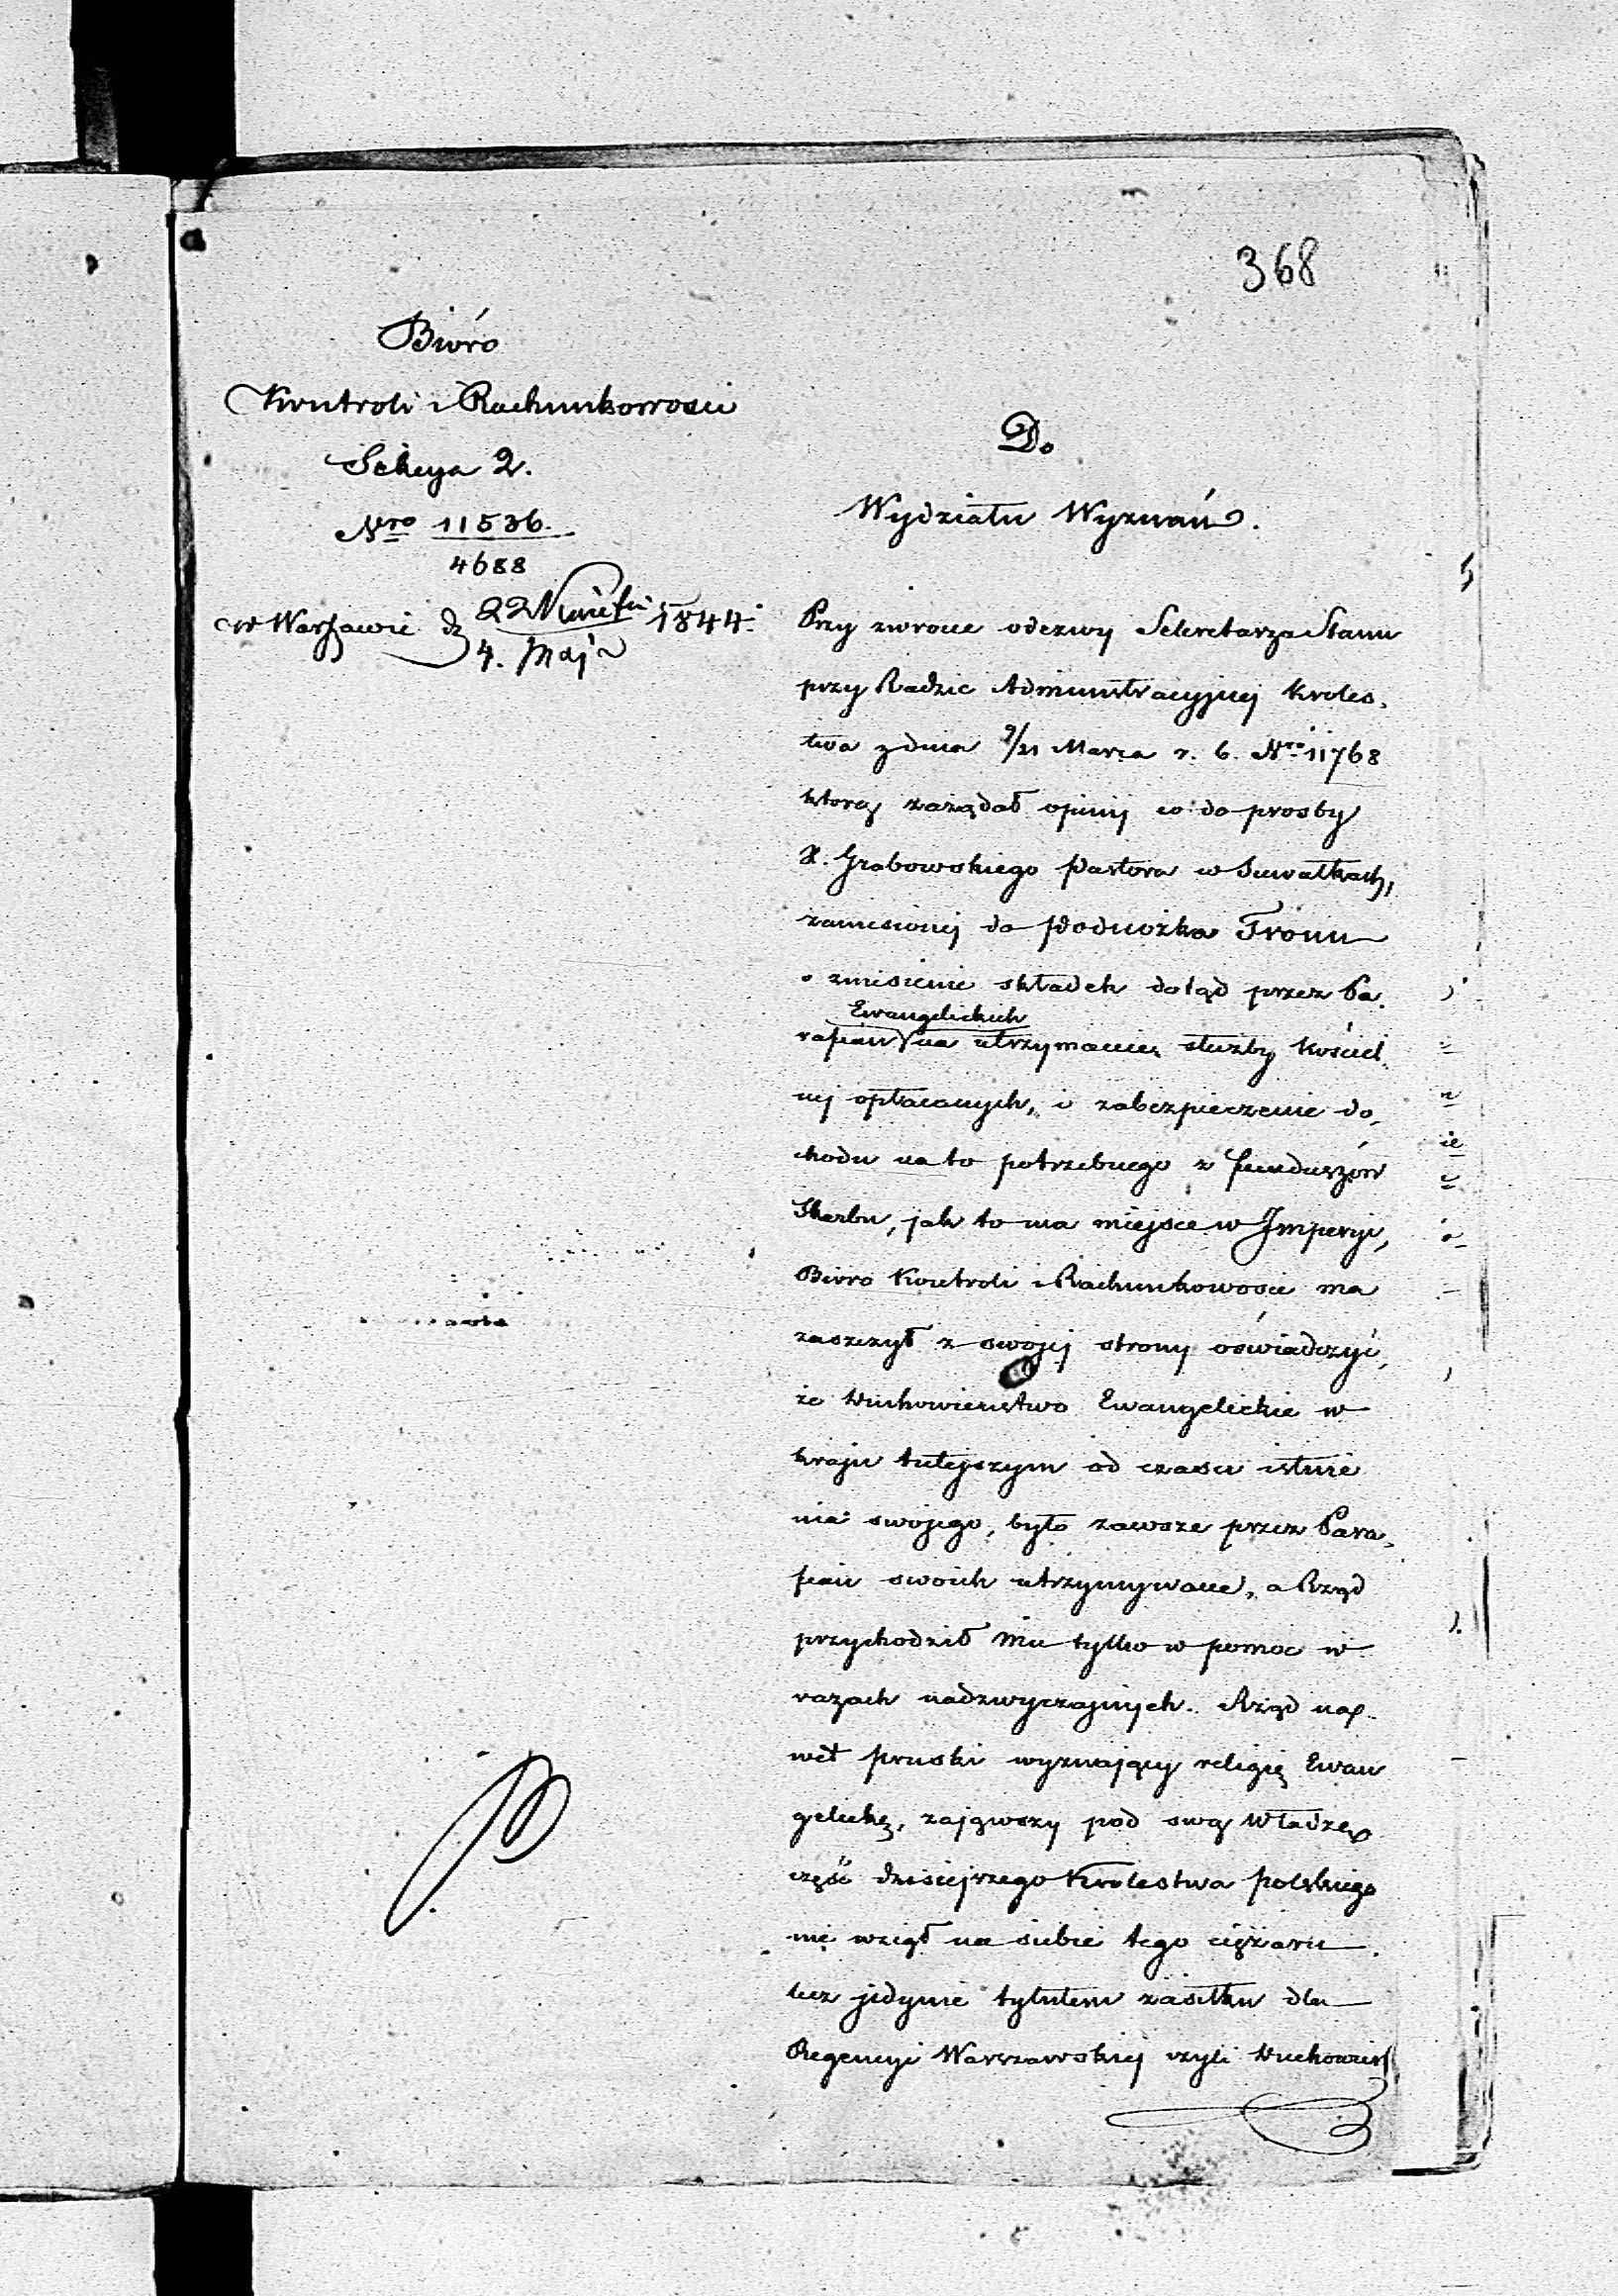 368
Biuro
Kontroli i Rachunkowosci
Sekcya 2.
Nro 11536.
4688
w Warszawie d. 22 Kwiet. 1844.
4. Maja
Do
Wydziału Wyznań.
Przy zwrocie odezwy Sekretarza Stanu
przy Radzie Administracyjnej Kroles-
twa z dnia 9/21 Marca r. b. Nro 11768
ktorą zażądał opinij co do prosby
X. Grabowskiego Pastora w Suwałkach,
zaniesionej do Podnożka Tronu
o zniesienie składek dotąd przez Pa-
Ewangelickich
rafian na utrzymanie służby Kosciel-
nej opłacanych, i zabezpieczenie do-
chodu na to potrzebnego z funduszów
Skarbu, jak to ma miejsce w Imperyi,
Biuro Kontroli i Rachunkowosci ma
zaszczyt z swojej strony oświadczyć,
że Duchowieństwo Ewangelickie w
kraju tutejszym od czasu istnie
nia swojego, było zawsze przez Para-
fian swoich utrzymywane, a Rząd
przychodził mu tylko w pomoc w
razach nadzwyczajnych. Rząd na-
wet pruski wyznający religię Ewan
gelicką, zająwszy pod swą Władzę
część dzisiejszego Krolestwa polskiego
nie wziął na siebie tego ciężaru
lecz jedynie tytułem zasiłku dla
Regencyi Warszawskiej czyli Duchowieńs